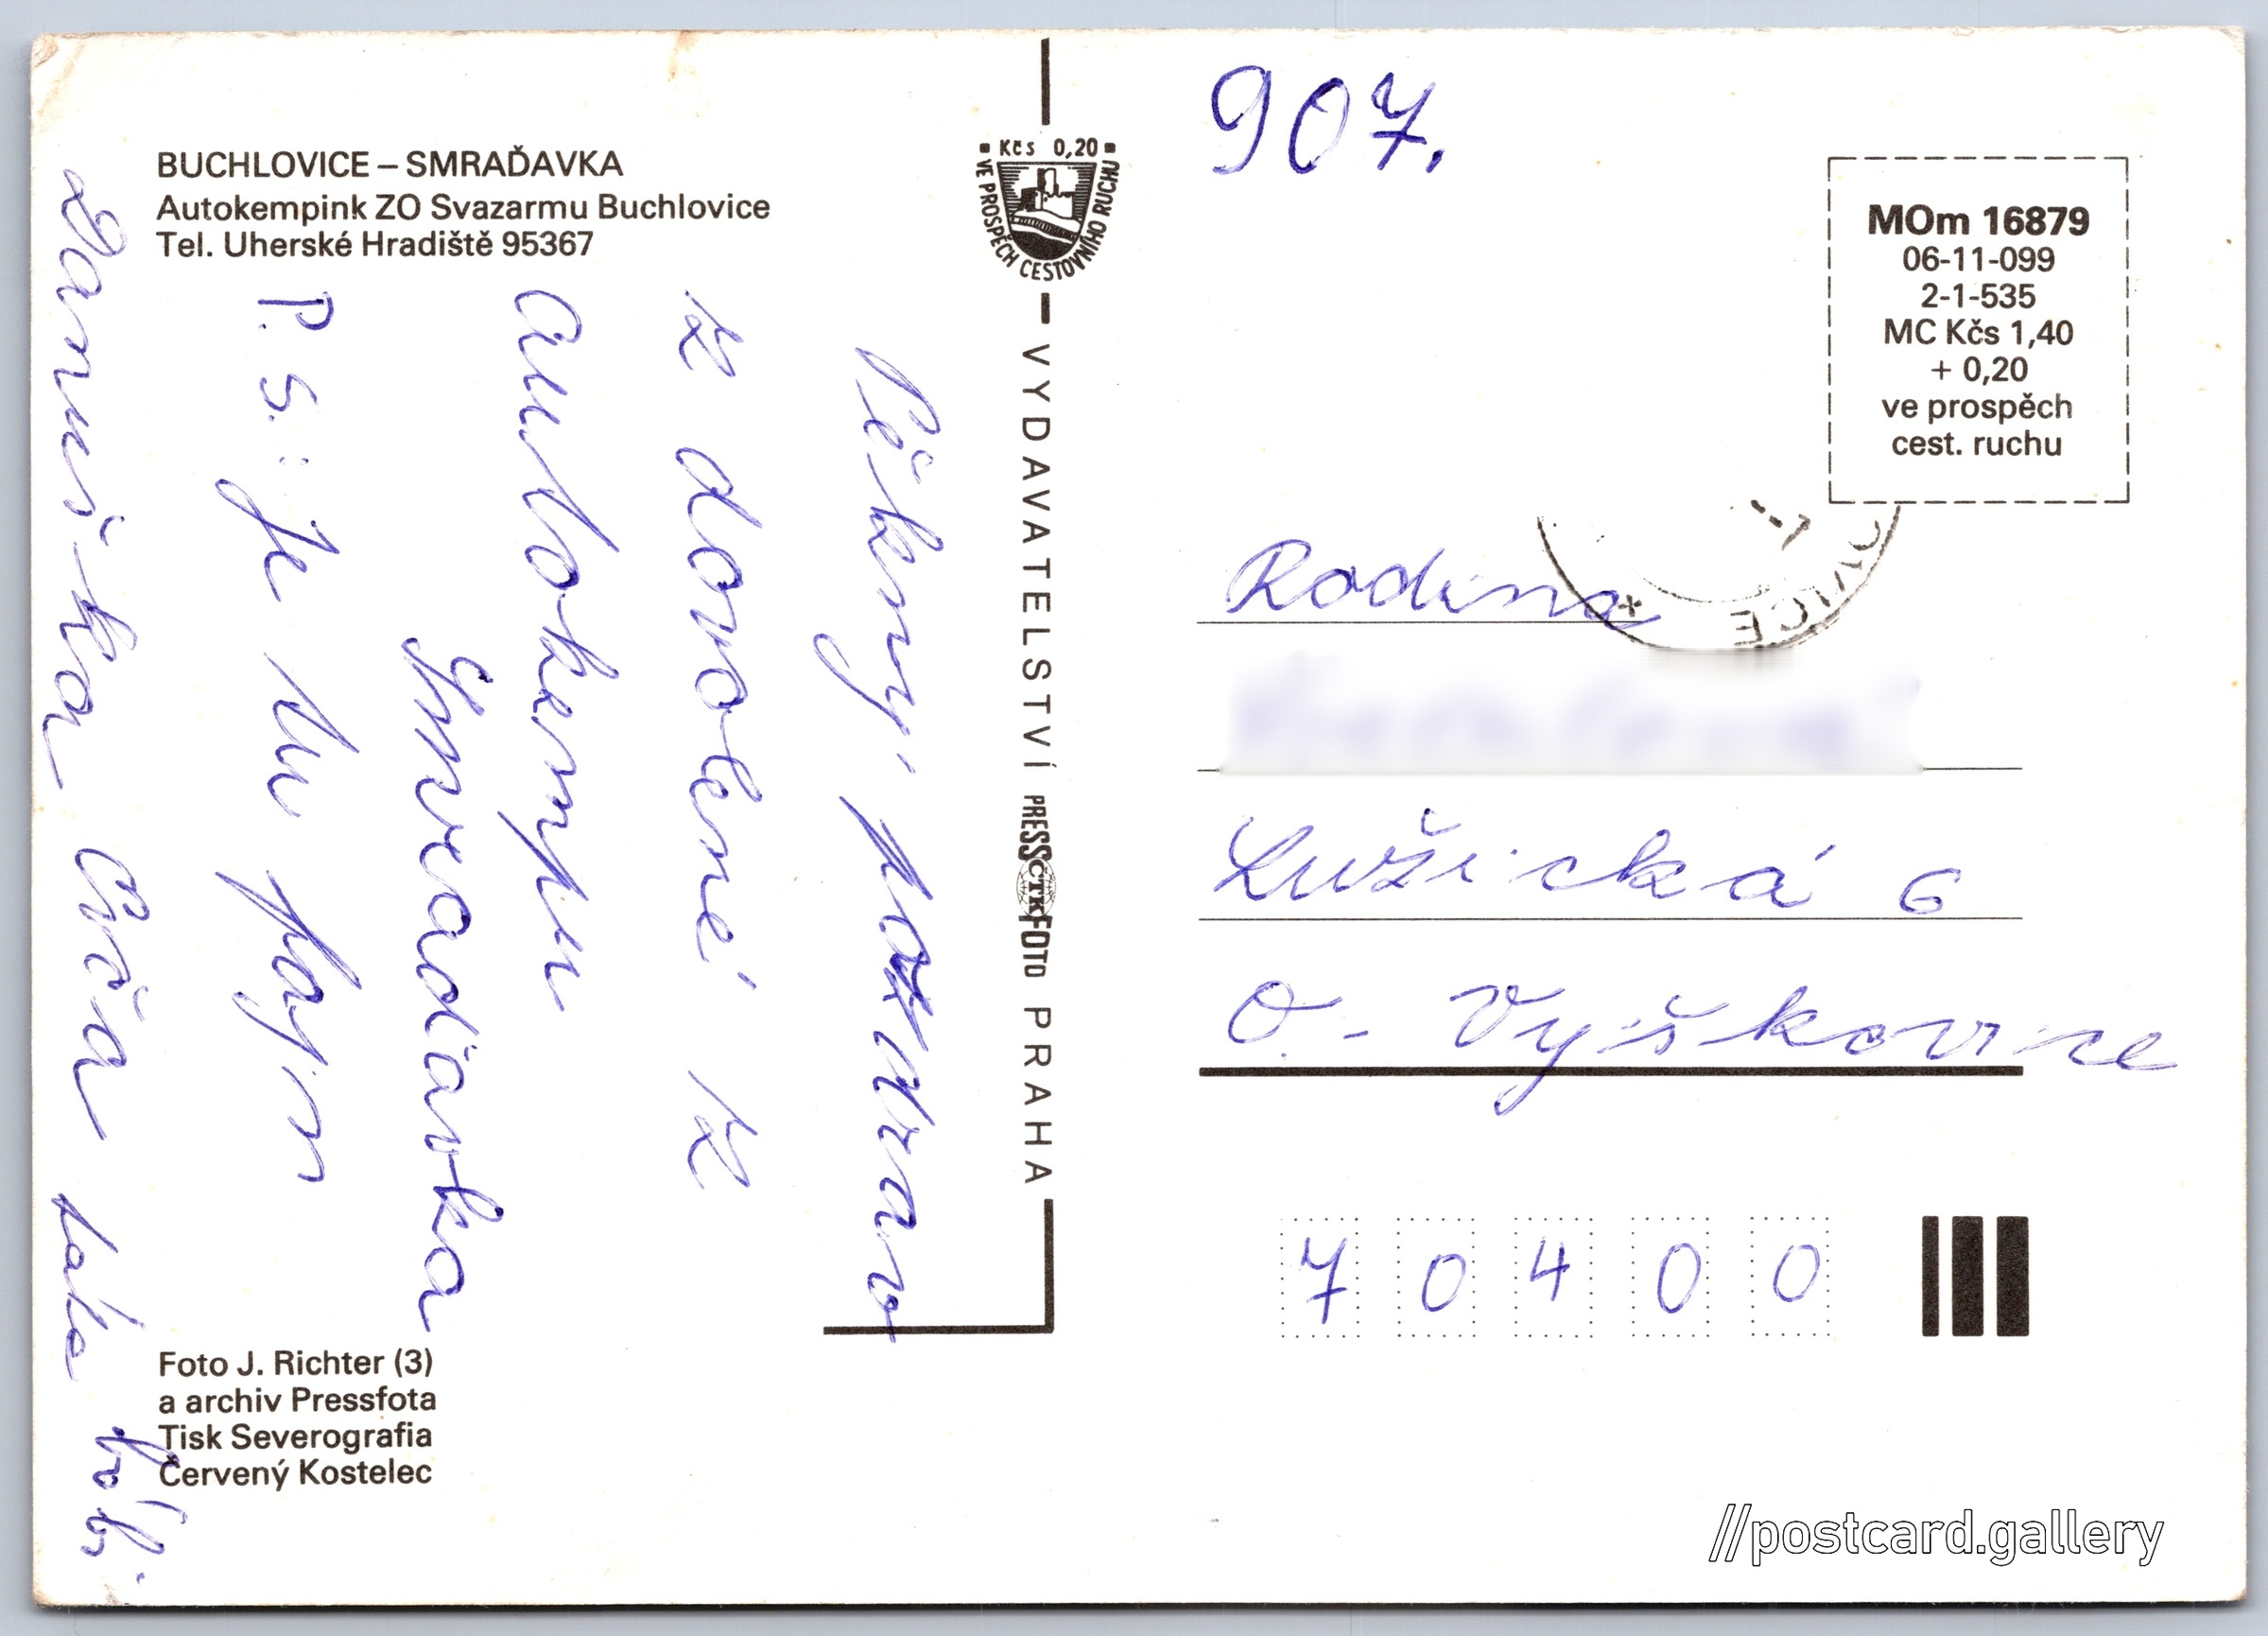 BUCHLOVICE – SMRAĎAVKA
Autokempink ZO Svazarmu Buchlovice
Tel. Uherské Hradiště 95367
Pěkný pozdrav
z dovolené z
autokempu
Smraďavka
P.S.: Je tu fajn
Danuška Cvóča
Foto J. Richter (3)
a archiv Pressfota
Tisk Severografia
Červený Kostelec
Kčs 0,20
VE PROSPĚCH CESTOVNÍHO RUCHU
VYDAVATELSTVÍ PRESSFOTO PRAHA
ČTK
907.
MOm 16879
06-11-099
2-1-535
MC Kčs 1,40
+ 0,20
ve prospěch
cest. ruchu
Rodina
Lužická 6
O. - Vyškovice
70400
//postcard.gallery